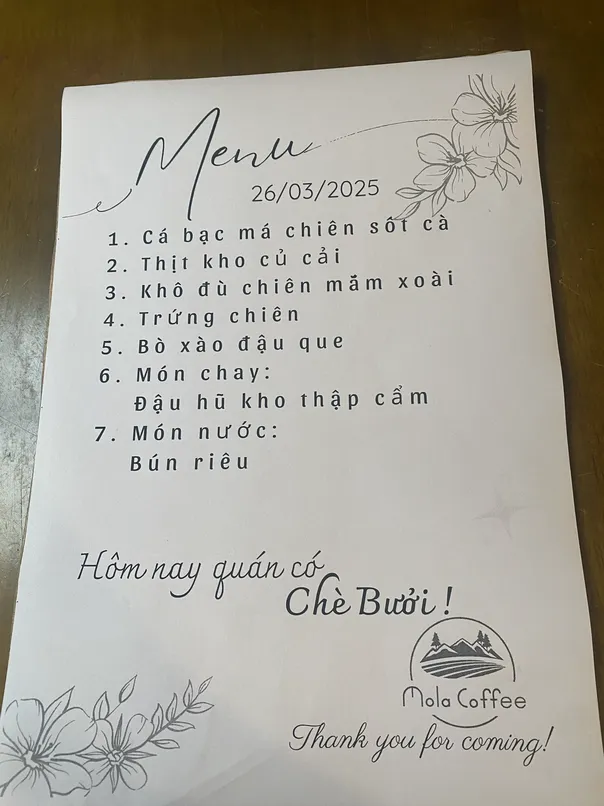 Menu
26/03/2025
1. Cá bạc má chiên sốt cà
2. Thịt kho củ cải
3. Khô đù chiên mắm xoài
4. Trứng chiên
5. Bò xào đậu que
6. Món chay:
Đậu hũ kho thập cẩm
7. Món nước:
Bún riêu
Hôm nay quán có
Chè Bưởi !
Mola Coffee
Thank you for coming!